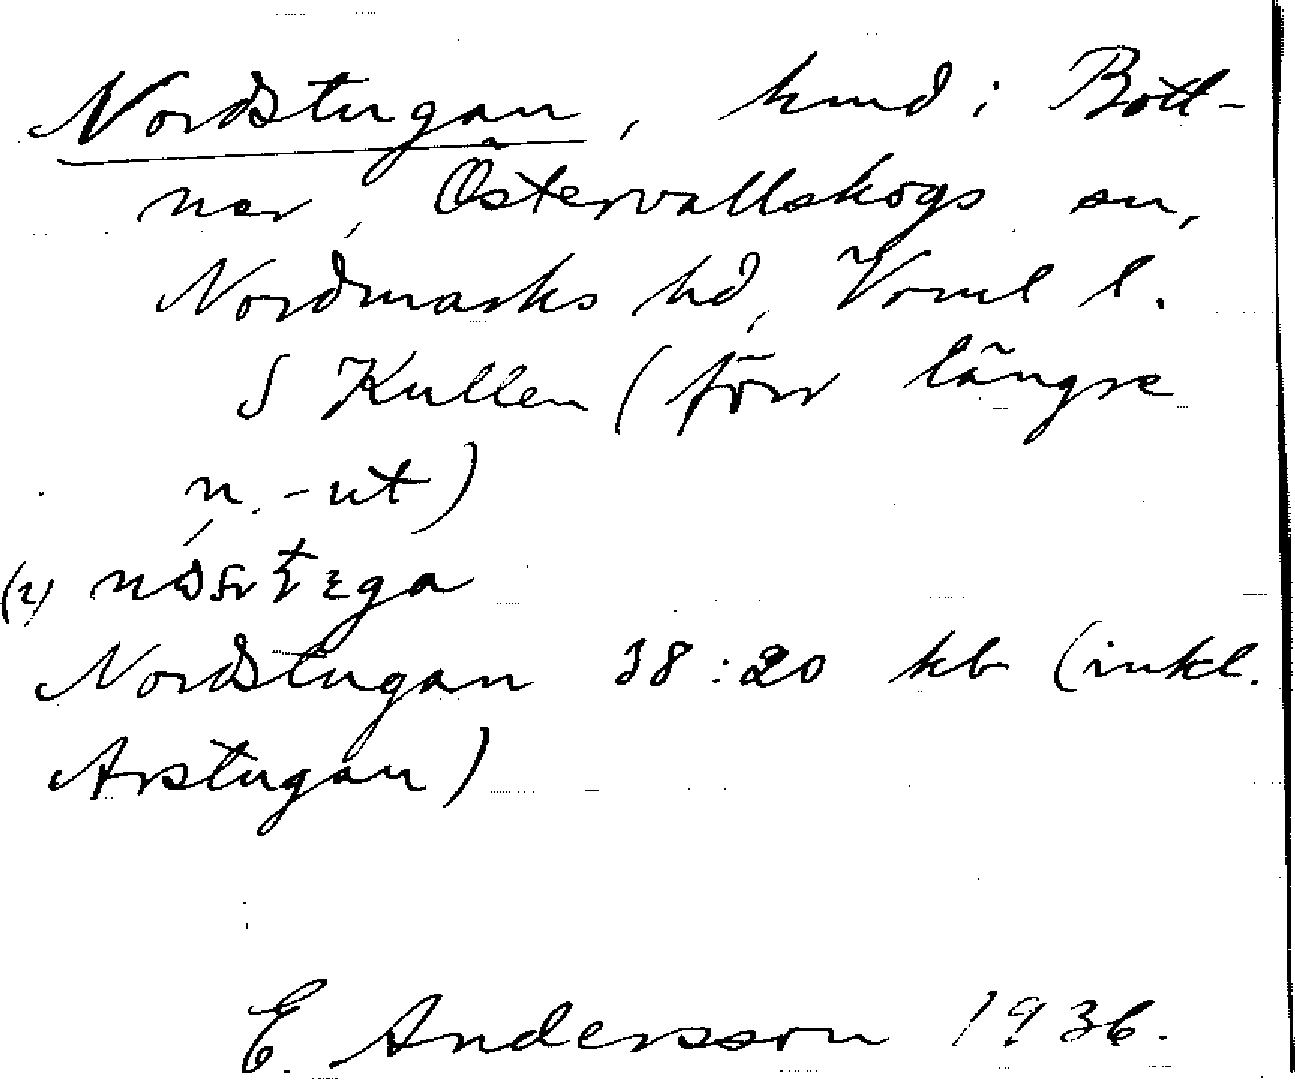 Nordstugan, hmd i Bött-
ner, Östervallskogs sn,
Nordmarks hd, Vrml l.
S Kullen (förr längre
n. -ut)
Nordstugan 38:20 kb (inkl.
Arstugan)
E. Andersson 1936.